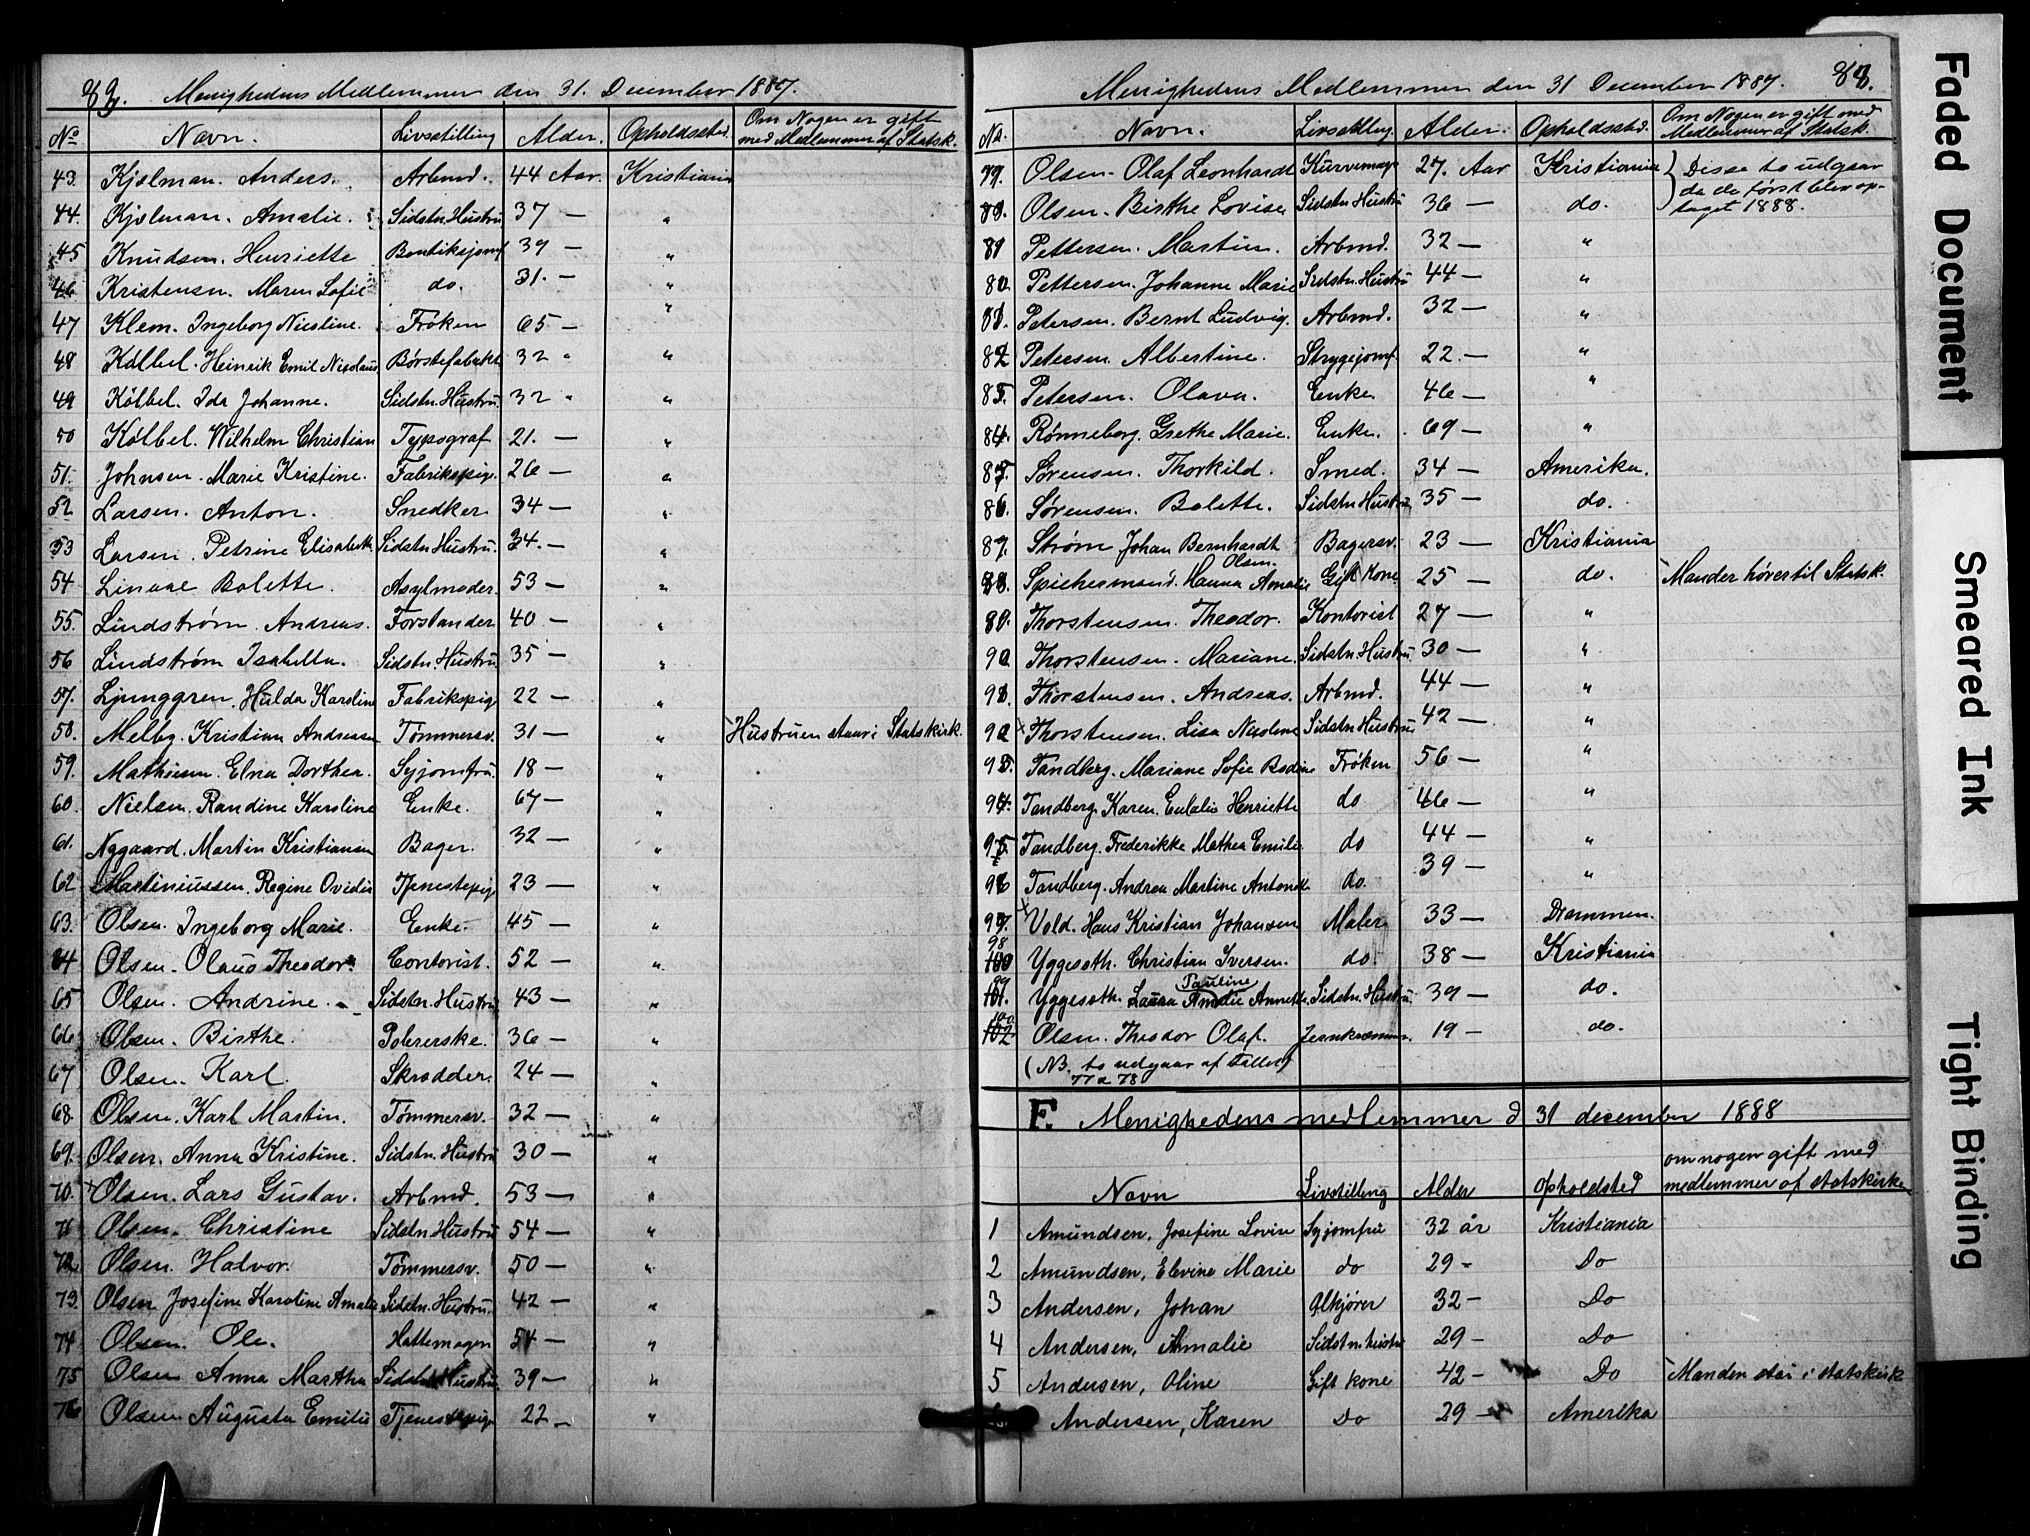 82. Menighedens Medlemmer den 31. December 1887.
No Navn. Livsstilling Alder. Opholdssted. Om Nogen er gift med Medlemmer af Statsk.
43. Kjølman. Anders. Arbmd. 44 Aar. Kristiania
44. Kjølman. Amalie. Sidstn. Hustru 37 — "
45 Knudsen. Henriette Boutiksjomf 39 — "
46 Kristensen. Maren Sofie do. 31. — "
47 Klem. Ingeborg Nicoline. Frøken 65 — "
48 Kölbel. Heinrik Emil Nicolaus Børstefabrkt 32 " "
49 Kölbel. Ida Johanne. Sidstn. Hustru. 32 " "
50 Kölbel. Wilhelm Christian Typograf 21. — "
51. Johnsen. Marie Kristine. Fabrikspig. 26 — "
52 Larsen. Anton. Snedker 34 — "
53 Larsen. Petrine Elisabeth Sidstn. Hustru. 34. — "
54 Linaae Bolette. Asylmoder. 53 — "
55. Lindstrøm. Andreas. Forstander 40 — "
56 Lindstrøm Isabella. Sidstn. Hustru. 35 — "
57. Ljunggren. Hulda Karoline Fabrikspig 22 — "
58. Melby. Kristian Andreasen Tømmersv. 31 — " Hustruen staar i Statskirk.
59. Mathisen. Elna Dorthea. Syjomfru. 18 — "
60. Nielsen. Randine Karoline Enke. 67 — "
61. Nygaard. Martin Kristiansen Bager. 32 — "
62 Martiniussen. Regine Ovidia Tjenestepig 23 — "
63. Olsen. Ingeborg Marie. Enke. 45 — "
64 Olsen. Olaus Theodor. Contorist. 52 — "
65 Olsen. Andrine. Sidstn. Hustru 43 — "
66 Olsen. Birthe. Polererske. 36 — "
67 Olsen. Karl. Skrædder. 24 — "
68. Olsen. Karl Martin. Tømmersv. 32 — "
69. Olsen. Anna Kristine. Sidstn. Hustru 30 — "
70. Olsen. Lars Gustav. Arbmd. 53 — "
71 Olsen. Christine Sidstn. Hustru 54 — "
72. Olsen. Halvor. Tømmersv. 50 — "
73. Olsen Josefine Karoline Amalie Sidstn. Hustru. 42 — "
74 Olsen. Ole. Hattemager 54 — "
75 Olsen Anna Martha Sidstn. Hustru. 39 — "
76 Olsen Augusta Emilie Tjenestepige 22 — "
Menighedens Medlemmer den 31 December 1887. 83.
No. Navn. Livsstilling. Alder. Opholdssted. Om Nogen er gift med Medlemmer af Statsk.
77. Olsen. Olaf Leonhardt Kurvemag 27. Aar Kristiania Disse to udgaar
Olsen. Birthe Lovise Sidstn. Hustru 36 — do. da de først blev op-
taget 1888.
Pettersen. Martin. Arbmd. 32 — "
80 Pettersen. Johanne Marie Sidstn. Hustru 44 — "
81. Petersen. Bernt Ludvig. Arbmd. 32 — "
82 Petersen Albertine. Strygejomf 22. — "
83. Petersen. Olava. Enke. 46 — "
84. Rønneborg. Grethe Marie. Enke. 69 — "
85. Sørensen. Thorkild. Smed. 34 — Amerika.
86. Sørensen. Bolette. Sidstn Hustru 35 — do.
87. Strøm Johan Bernhardt Bagersv. 23 — Kristiania
Olsen.
88. Spichermand. Hanna Amalie Gift Kone. 25 — do. Manden hører til Statsk.
89. Thorstensen. Theodor. Kontorist 27 — "
90 Thorstensen. Mariane. Sidstn. Hustru 30 — "
91. Thorstensen. Andreas. Arbmd. 44 — "
92 Thorstensen. Lisa Nicoline Sidstn. Hustru 42 — "
93. Tandberg. Mariane Sofie Bodine Frøken 56 — "
94. Tandberg. Karen Eulalia Henriette do 46 — "
95 Tandberg. Frederikke Mathea Emilie do 44 — "
96 Tandberg. Andrea Martine Antonette do. 39 — "
97. Vold. Hans Kristian Johansen Maler 33 — Drammen.
98
100 Yggeseth. Christian Iversen. do. 38 — Kristiania
99 Pauline
101. Yggeseth. Laura Amalie Annette. Sidstn. Hustru. 39 — do.
100
102 Olsen. Theodor Olaf. 19 — do.
(NB. to udgaar af Tallet)
77 a 78
F. Menighedens medlemmer d 31 december 1888
Navn Livstilling Alder Opholdsted om nogen gift med medlemmer af statskirke
1 Amundsen, Josefine Lovise Syjomfru 32 år Kristiania
2 Amundsen, Elevine Marie do 29 - Do
3 Andersen, Johan Ølkjører 32 - Do
4 Andersen, Amalie Sidstn hustru 29 - Do
5 Andersen, Oline Gift kone 42 - Do Manden står i statskirk
Andersen, Karen Do 29 - Amerika
Faded Document
Smeared Ink
Tight Binding